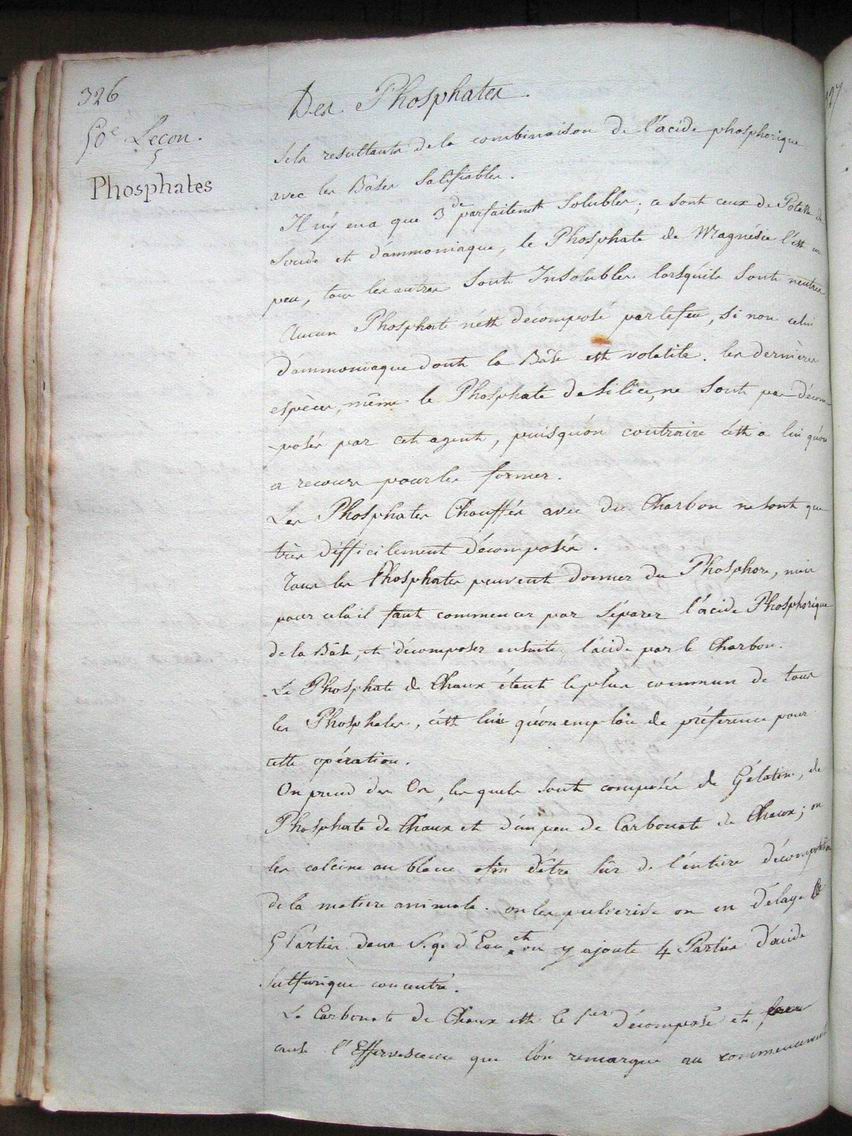 326
Des Phosphates.
50e Leçon.
Phosphates
Sels resultants de la combinaison de l'acide phosphorique
avec les Bases Salifiables.
Il n'y en a que 3 de parfaitemt Solubles; ce sont ceux de Potasse de
Soude et d'ammoniaque, le Phosphate de Magnésie l'est un
peu, tous les autres sont Insolubles lorsqu'ils sont neutres
Aucun Phosphate n'est décomposé par le feu, si non celui
d'ammoniaque dont la Base est volatile. les dernières
espèces, même le Phosphate de Silice, ne sont pas décom
-posés par cet agent, puisqu'on contraire c'est a lui qu'on
a recours pour les former.
Les Phosphates Chauffés avec du Charbon ne sont que
très difficilement décomposés.
Tous les Phosphates peuvent donner du Phosphore, mais
pour cela il faut commencer par séparer l'acide Phosphorique
de la Base, et décomposer ensuite l'acide par le Charbon.
Le Phosphate de Chaux étant le plus commun de tous
les Phosphates, c'est lui qu'on emploie de préférence pour
cette opération.
On prend des Os, les quels sont composés de Gélatine, de
Phosphate de Chaux et d'un peu de Carbonate de Chaux; on
les calcine au blanc afin d'être sûr de l'entière décomposition
de la matière animale. on les pulverise on en délaye
5 Parties dans S.q. d'Eau et on y ajoute 4 Parties d'acide
Sulfurique concentré.
Le Carbonate de Chaux est le 1er décomposé et
cause l'Effervescence que l'on remarque au commencement